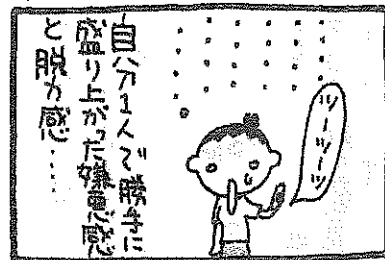 ツーツーツ
自分1人で勝手に
盛り上がった嫌悪感
と脱力感……